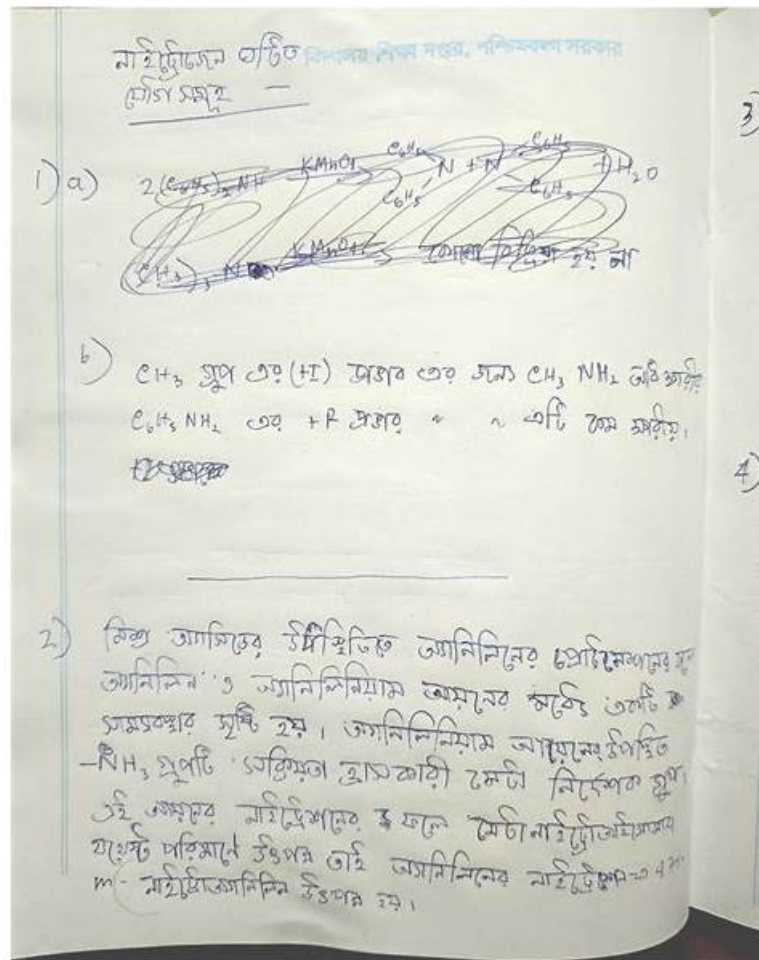 নাইট্রোজেন ঘটিত
যৌগ সমূহ —
1) a) 2(C6H5)2NH KMnO4 C6H5 N + N C6H5 + H2O
C6H5 C6H5
(CH3)3 N KMnO4 কোনো বিক্রিয়া হয় না
b) CH3 গ্রুপ এর (+I) প্রভাব এর জন্য CH3 NH2 ক্ষারীয়
C6H5 NH2 এর +R প্রভাব " " এটি কম ক্ষারীয়।
2) মিশ্র অ্যাসিডের উপস্থিতিতে অ্যানিলিনের প্রোটনেশনের
অ্যানিলিন ও অ্যানিলিনিয়াম আয়নের মধ্যে একটি
সাম্যাবস্থার সৃষ্টি হয়। অ্যানিলিনিয়াম আয়নের উপস্থিত
–NH3 গ্রুপটি সক্রিয়তা হ্রাসকারী মেটা নির্দেশক গ্রুপ।
এই আয়নের নাইট্রেশনের ফলে মেটা
যথেষ্ট পরিমানে উৎপন্ন তাই অ্যানিলিনের
m - নাইট্রোঅ্যানিলিন উৎপন্ন হয়।
3)
4)